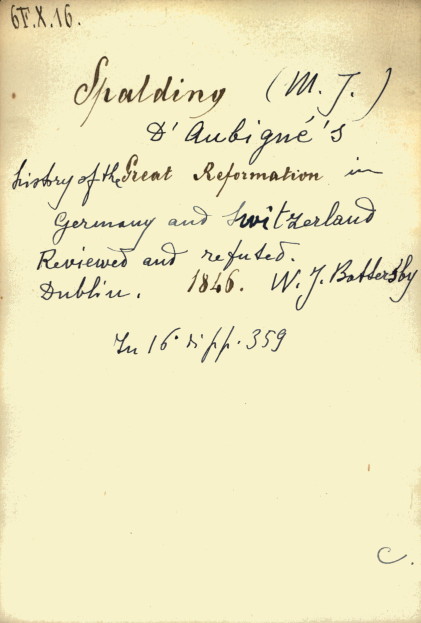 6F.X.16.
Spalding (M. J.)
D'Aubigné's
history of the Great Reformation in
Germany and Switzerland
Reviewed and refuted.
Dublin. 1846. W. J. Battersby
In 16° di pp. 359
C.